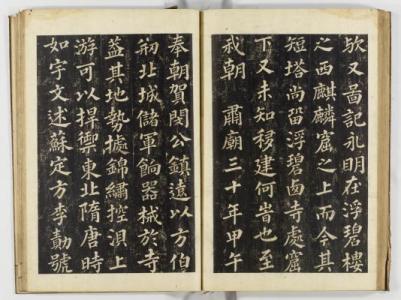 欤又啚記永明在浮碧樓
之西麒麟窟之上而今其
短塔尚留浮碧西寺處窟
下又未知移建何旹也至
我朝　肅廟三十年甲午
奉朝賀閔公鎮遠以方伯
刱北城儲軍餉器械於寺
葢其地勢據錦繡控浿上
游可以捍禦東北隋唐時
如宇文述蘇定方李勣號